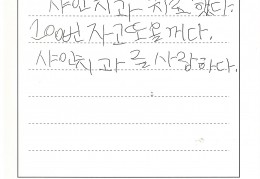 샤인치과 치료했다.
100번 자고 또 올꺼다.
샤인치과를 사랑하다.